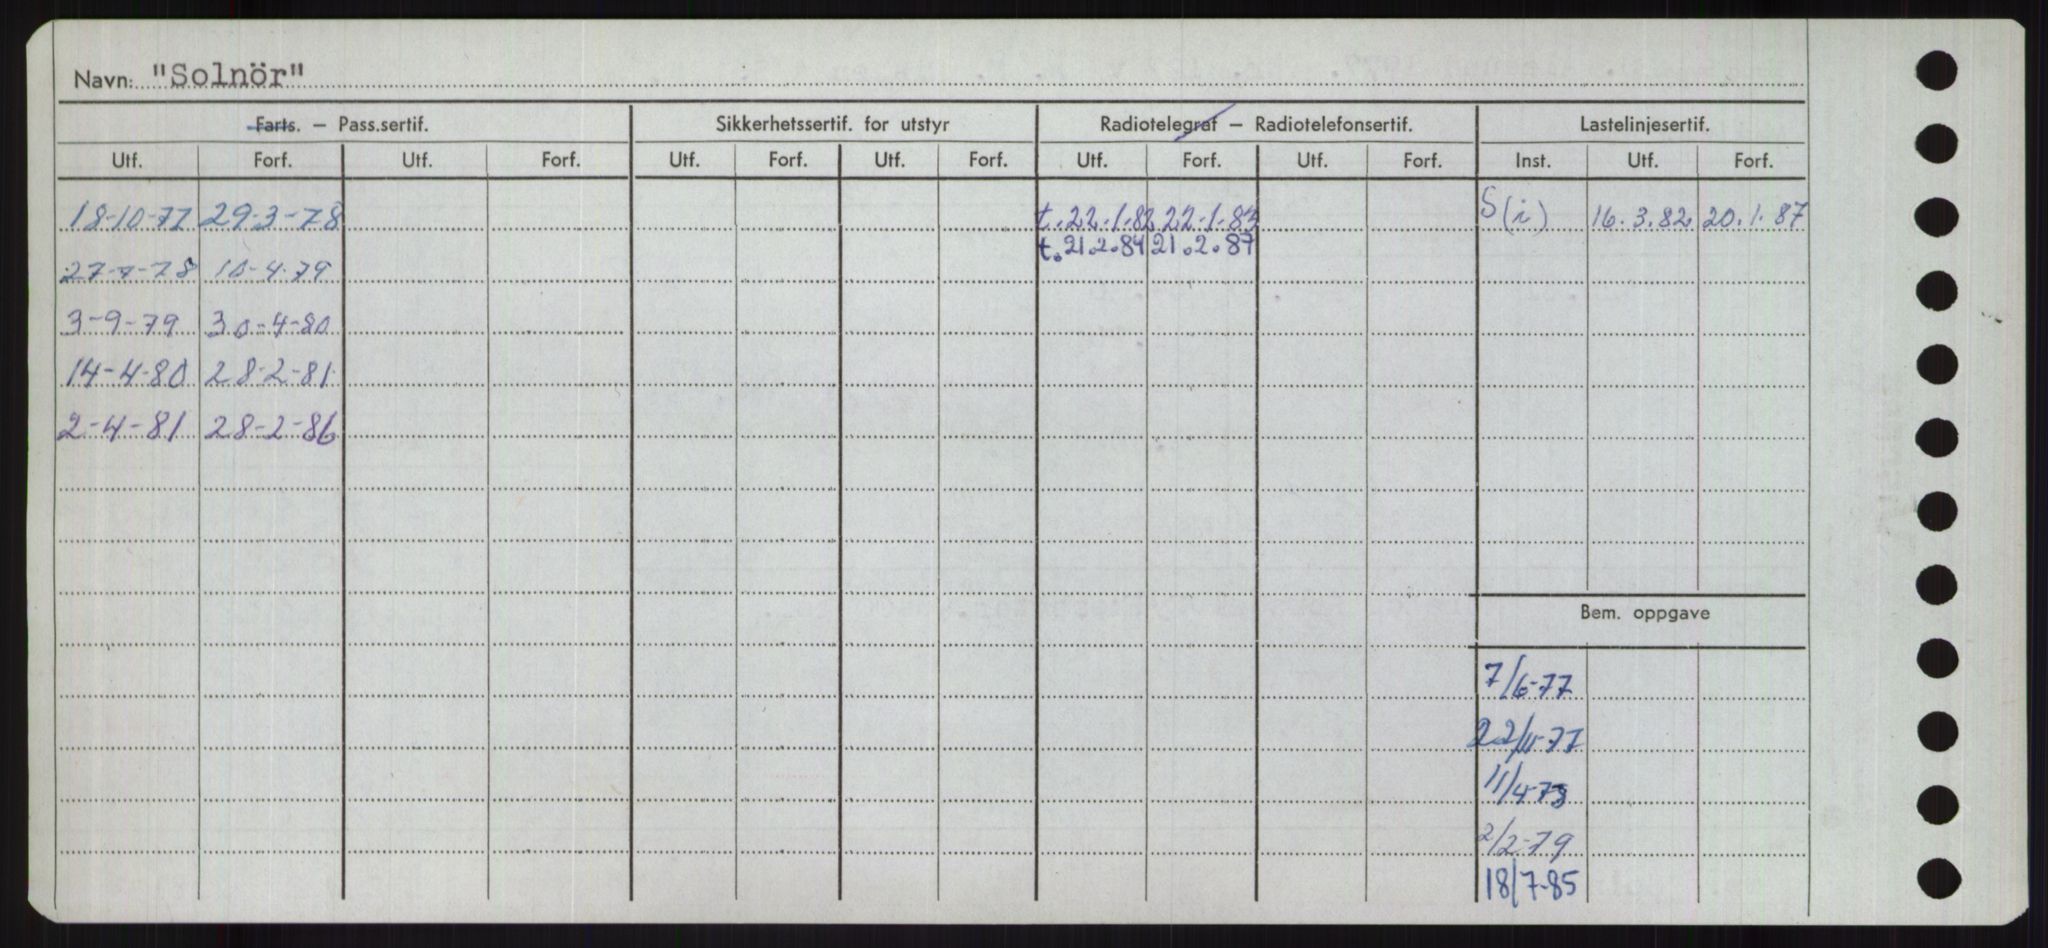 Navn: "Solnör"
Farts. – Pass.sertif. Sikkerhetssertif. for utstyr Radiotelegraf – Radiotelefonsertif. Lastelinjesertif.
Utf. Forf. Utf. Forf. Utf. Forf. Utf. Forf. Utf. Forf. Utf. Forf. Inst. Utf. Forf.
18-10-77 29-3-78 t. 22.1.82 22.1.83 S(i) 16.3.82 20.1.87
t. 21.2.84 21.2.87
27-7-78 10-4-79
3-9-79 30-4-80
14-4-80 28-2-81
2-4-81 28-2-86
Bem. oppgave
7/6-77
22/11-77
11/4-78
2/2-79
18/7-85